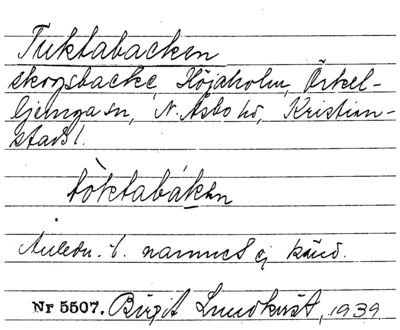 Tuktabacken
skogsbacke, Höjaholm, Örkel-
ljunga sn, N. Åsbo hd, Kristian-
stads l.
töktabáken
Anledn. t. namnet ej känd.
Nr 5507. Birgit Lundkvist, 1939.